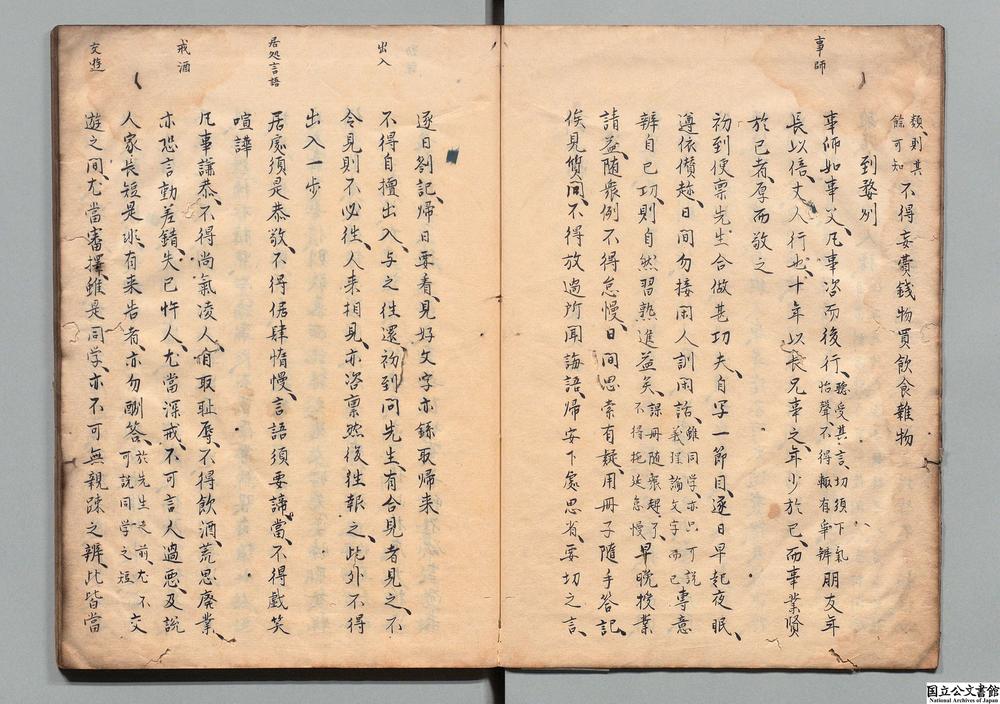 事師
類、則其
餘可知
不得妄費錢物、買飲食雜物
到婺別
事師如事父、凡事咨而後行、
聽受其言、切須下氣
怡聲、不得輒有爭辨
朋友年
長以倍、丈人行也、十年以長、兄事之、年少於己、而事業賢
於己者、厚而敬之
初到便禀先生、合做甚功夫、自写一節目、逐日早起夜眠、
遵依儧趂、日間勿接閑人、訓閑話、
雖同学、亦只可説
義理、論文字而已
專意
辨自己功、則自然習熟進益矣、
課冊随衆趕了、
不得拖延怠慢
早晚授業
請益、随衆例不得怠慢、日間思索有疑、用冊子随手答記、
俟見質問、不得放過、所聞誨語、帰安下處思省、要切之言、
出入
居処言語
戒酒
交遊
逐日劄記、帰日要看、見好文字、亦錄取帰来
不得自擅出入、与之往還、初到問先生有合見者見之、不
令見則不必往、人来相見、亦咨禀然後往報之、此外不得
出入一歩
居處須是恭敬、不得倨肆惰慢、言語須要諦當、不得戲笑
喧譁
凡事謙恭、不得尚氣凌人、自取耻辱、不得飲酒、荒思廢業、
亦恐言動差錯、失已忤人、尤當深戒、不可言人過悪、及説
人家長短是非、有来告者、亦勿酬答、
於先生之前、尤不
可説同学之短
交
遊之間、尤當審擇、雖是同学、亦不可無親踈之辨、此皆當
国立公文書館
National Archives of Japan